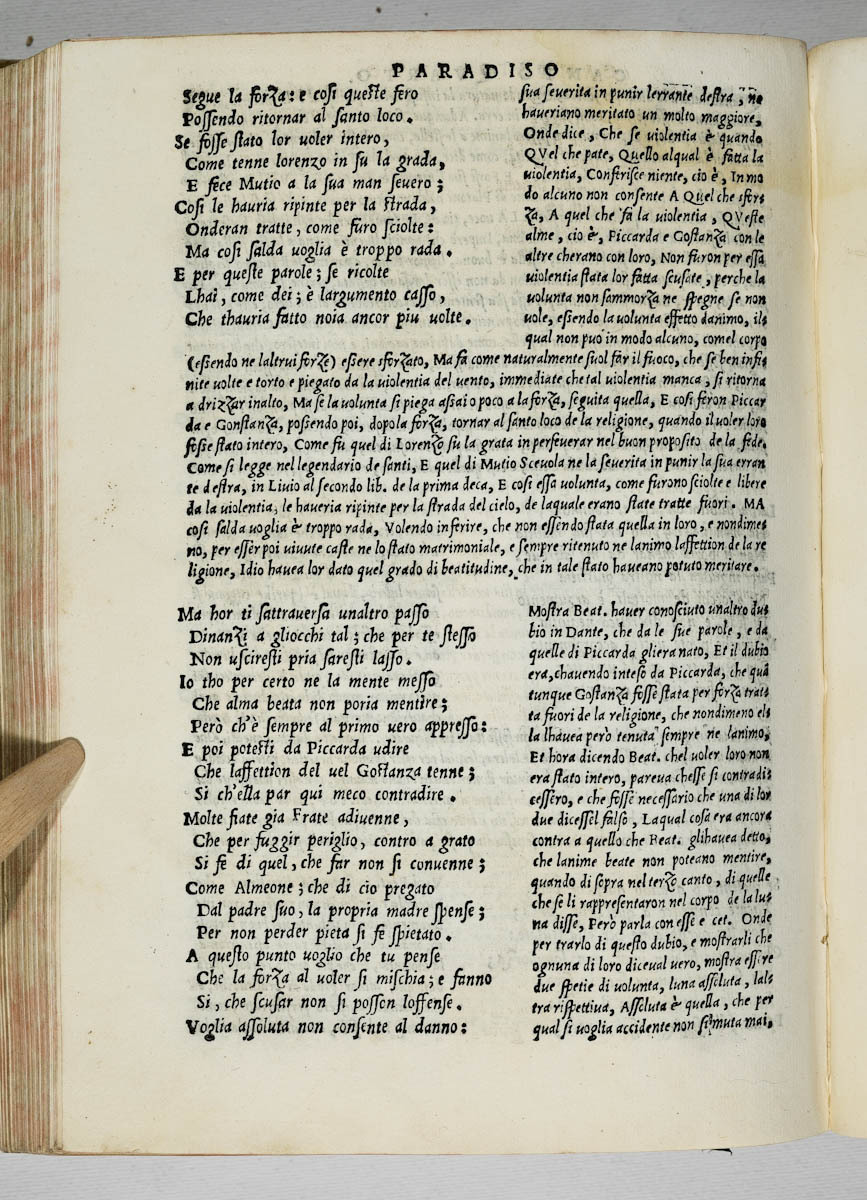 PARADISO
Segue la forza: e cosi queste fero
Possendo ritornar al santo loco.
Se fosse stato lor uoler intero,
Come tenne lorenzo in su la grada,
E fece Mutio a la sua man seuero;
Cosi le hauria ripinte per la strada,
Onderan tratte, come furo sciolte:
Ma cosi salda uoglia è troppo rada.
E per queste parole; se ricolte
Lhai, come dei; è largumento casso,
Che thauria fatto noia ancor piu uolte.
sua seuerita in punir lerrante destra, ne
haueriano meritato un molto maggiore,
Onde dice, Che se uiolentia è quando
QVel che pate, Quello alqual è fatta la
uiolentia, Conferisce niente, cio è, In mo
do alcuno non consente A Quel che sfor
za, A quel che fa la uiolentia, QVeste
alme, cio è, Piccarda e Gostanza con le
altre cherano con loro, Non furon per essa
uiolentia stata lor fatta scusate, perche la
uolunta non sammorza ne spegne se non
uole, essendo la uolunta effetto danimo, il
qual non puo in modo alcuno, comel corpo
(essendo ne laltrui forze) essere sforzato, Ma fa come naturalmente suol far il fuoco, che se ben infi
nite uolte e torto e piegato da la uiolentia del uento, immediate che tal uiolentia manca, si ritorna
a drizzar inalto, Ma se la uolunta si piega assai o poco a la forza, seguita quella, E cosi feron Piccar
da e Gonstanza, possendo poi, dopo la forza, tornar al santo loco de la religione, quando il uoler loro
fosse stato intero, Come fu quel di Lorenzo su la grata in perseuerar nel buon proposito de la fede.
Come si legge nel legendario de santi, E quel di Mutio Sceuola ne la seuerita in punir la sua erran
te destra, in Liuio al secondo lib. de la prima deca, E cosi essa uolunta, come furono sciolte e libere
da la uiolentia, le haueria ripinte per la strada del cielo, de laquale erano state tratte fuori. MA
cosi salda uoglia è troppo rada, Volendo inferire, che non essendo stata quella in loro, e nondime
no, per esser poi uiuute caste ne lo stato matrimoniale, e sempre ritenuto ne lanimo laffettion de la re
ligione, Idio hauea lor dato quel grado di beatitudine, che in tale stato haueano potuto meritare.
Ma hor ti sattrauersa unaltro passo
Dinanzi a gliocchi tal; che per te stesso
Non usciresti pria saresti lasso.
Io tho per certo ne la mente messo
Che alma beata non poria mentire;
Però ch'è sempre al primo uero appresso:
E poi potesti da Piccarda udire
Che laffettion del uel Gostanza tenne;
Si ch'ella par qui meco contradire.
Molte fiate gia Frate adiuenne,
Che per fuggir periglio, contro a grato
Si fe di quel, che far non si conuenne;
Come Almeone; che di cio pregato
Dal padre suo, la propria madre spense;
Per non perder pieta si fe spietato.
A questo punto uoglio che tu pense
Che la forza al uoler si mischia; e fanno
Si, che scusar non si posson loffense.
Voglia assoluta non consente al danno:
Mostra Beat. hauer conosciuto unaltro du
bio in Dante, che da le sue parole, e da
quelle di Piccarda gliera nato, Et il dubio
era, chauendo inteso da Piccarda, che quā
tunque Gostanza fosse stata per forza trat
ta fuori de la religione, che nondimeno el
la lhauea però tenuta sempre ne lanimo,
Et hora dicendo Beat. chel uoler loro non
era stato intero, pareua chesse si contradi
cessero, e che fosse necessario che una di lor
due dicessel falso, Laqual cosa era ancora
contra a quello che Beat. glihauea detto,
che lanime beate non poteano mentire,
quando di sopra nel terzo canto, di quelle
che se li rappresentaron nel corpo de la lu
na disse, Però parla con esse e cet. Onde
per trarlo di questo dubio, e mostrarli che
ognuna di loro diceual uero, mostra essere
due spetie di uolunta, luna assoluta, lal
tra rispettiua, Assoluta è quella, che per
qual si uoglia accidente non si muta mai,